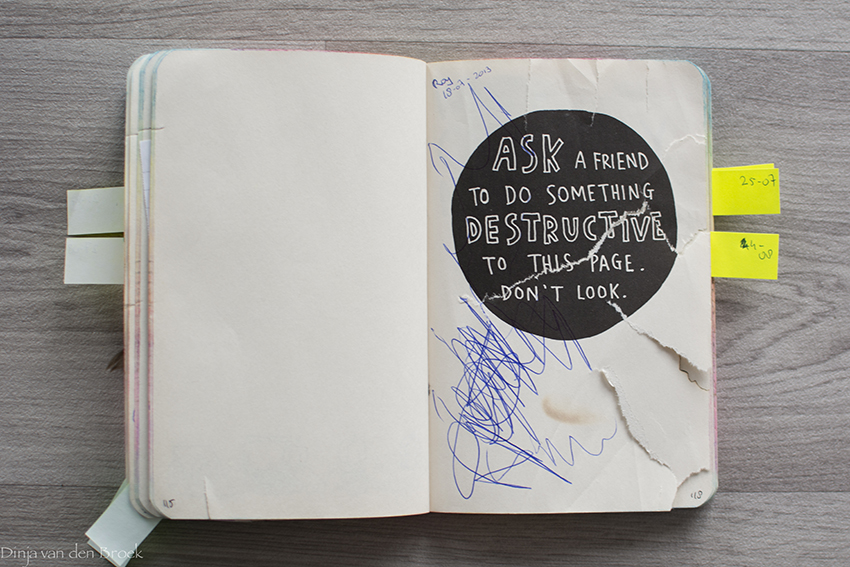 Roy
18-07-2013
ASK A FRIEND
TO DO SOMETHING
DESTRUCTIVE
TO THIS PAGE.
DON'T LOOK.
25-07
Dinja van den Broek